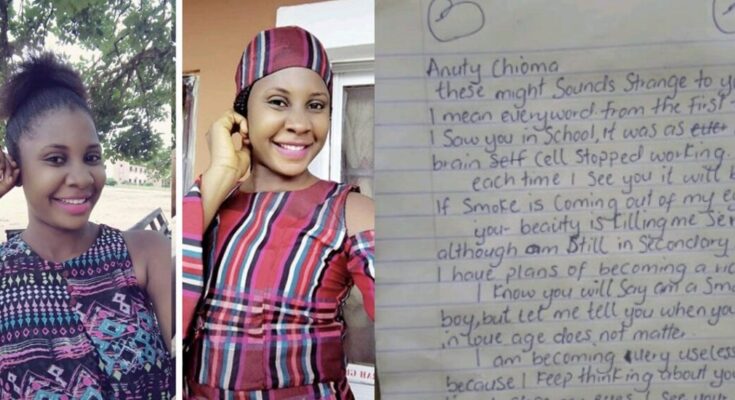 Anuty Chioma
these might Sounds Strange to
I mean everyword from the first
I Saw you in School, it was as
brain Self Cell Stopped working.
each time I See you it will
If Smoke is Coming out of my
your beauity is killing me
although am Still in Secondary
I have plans of becoming a
I know you will Say am a
boy, but Let me tell you when
in Love age does not matter.
I am becoming very useless
because I Keep thinking about
I See your
RAH G